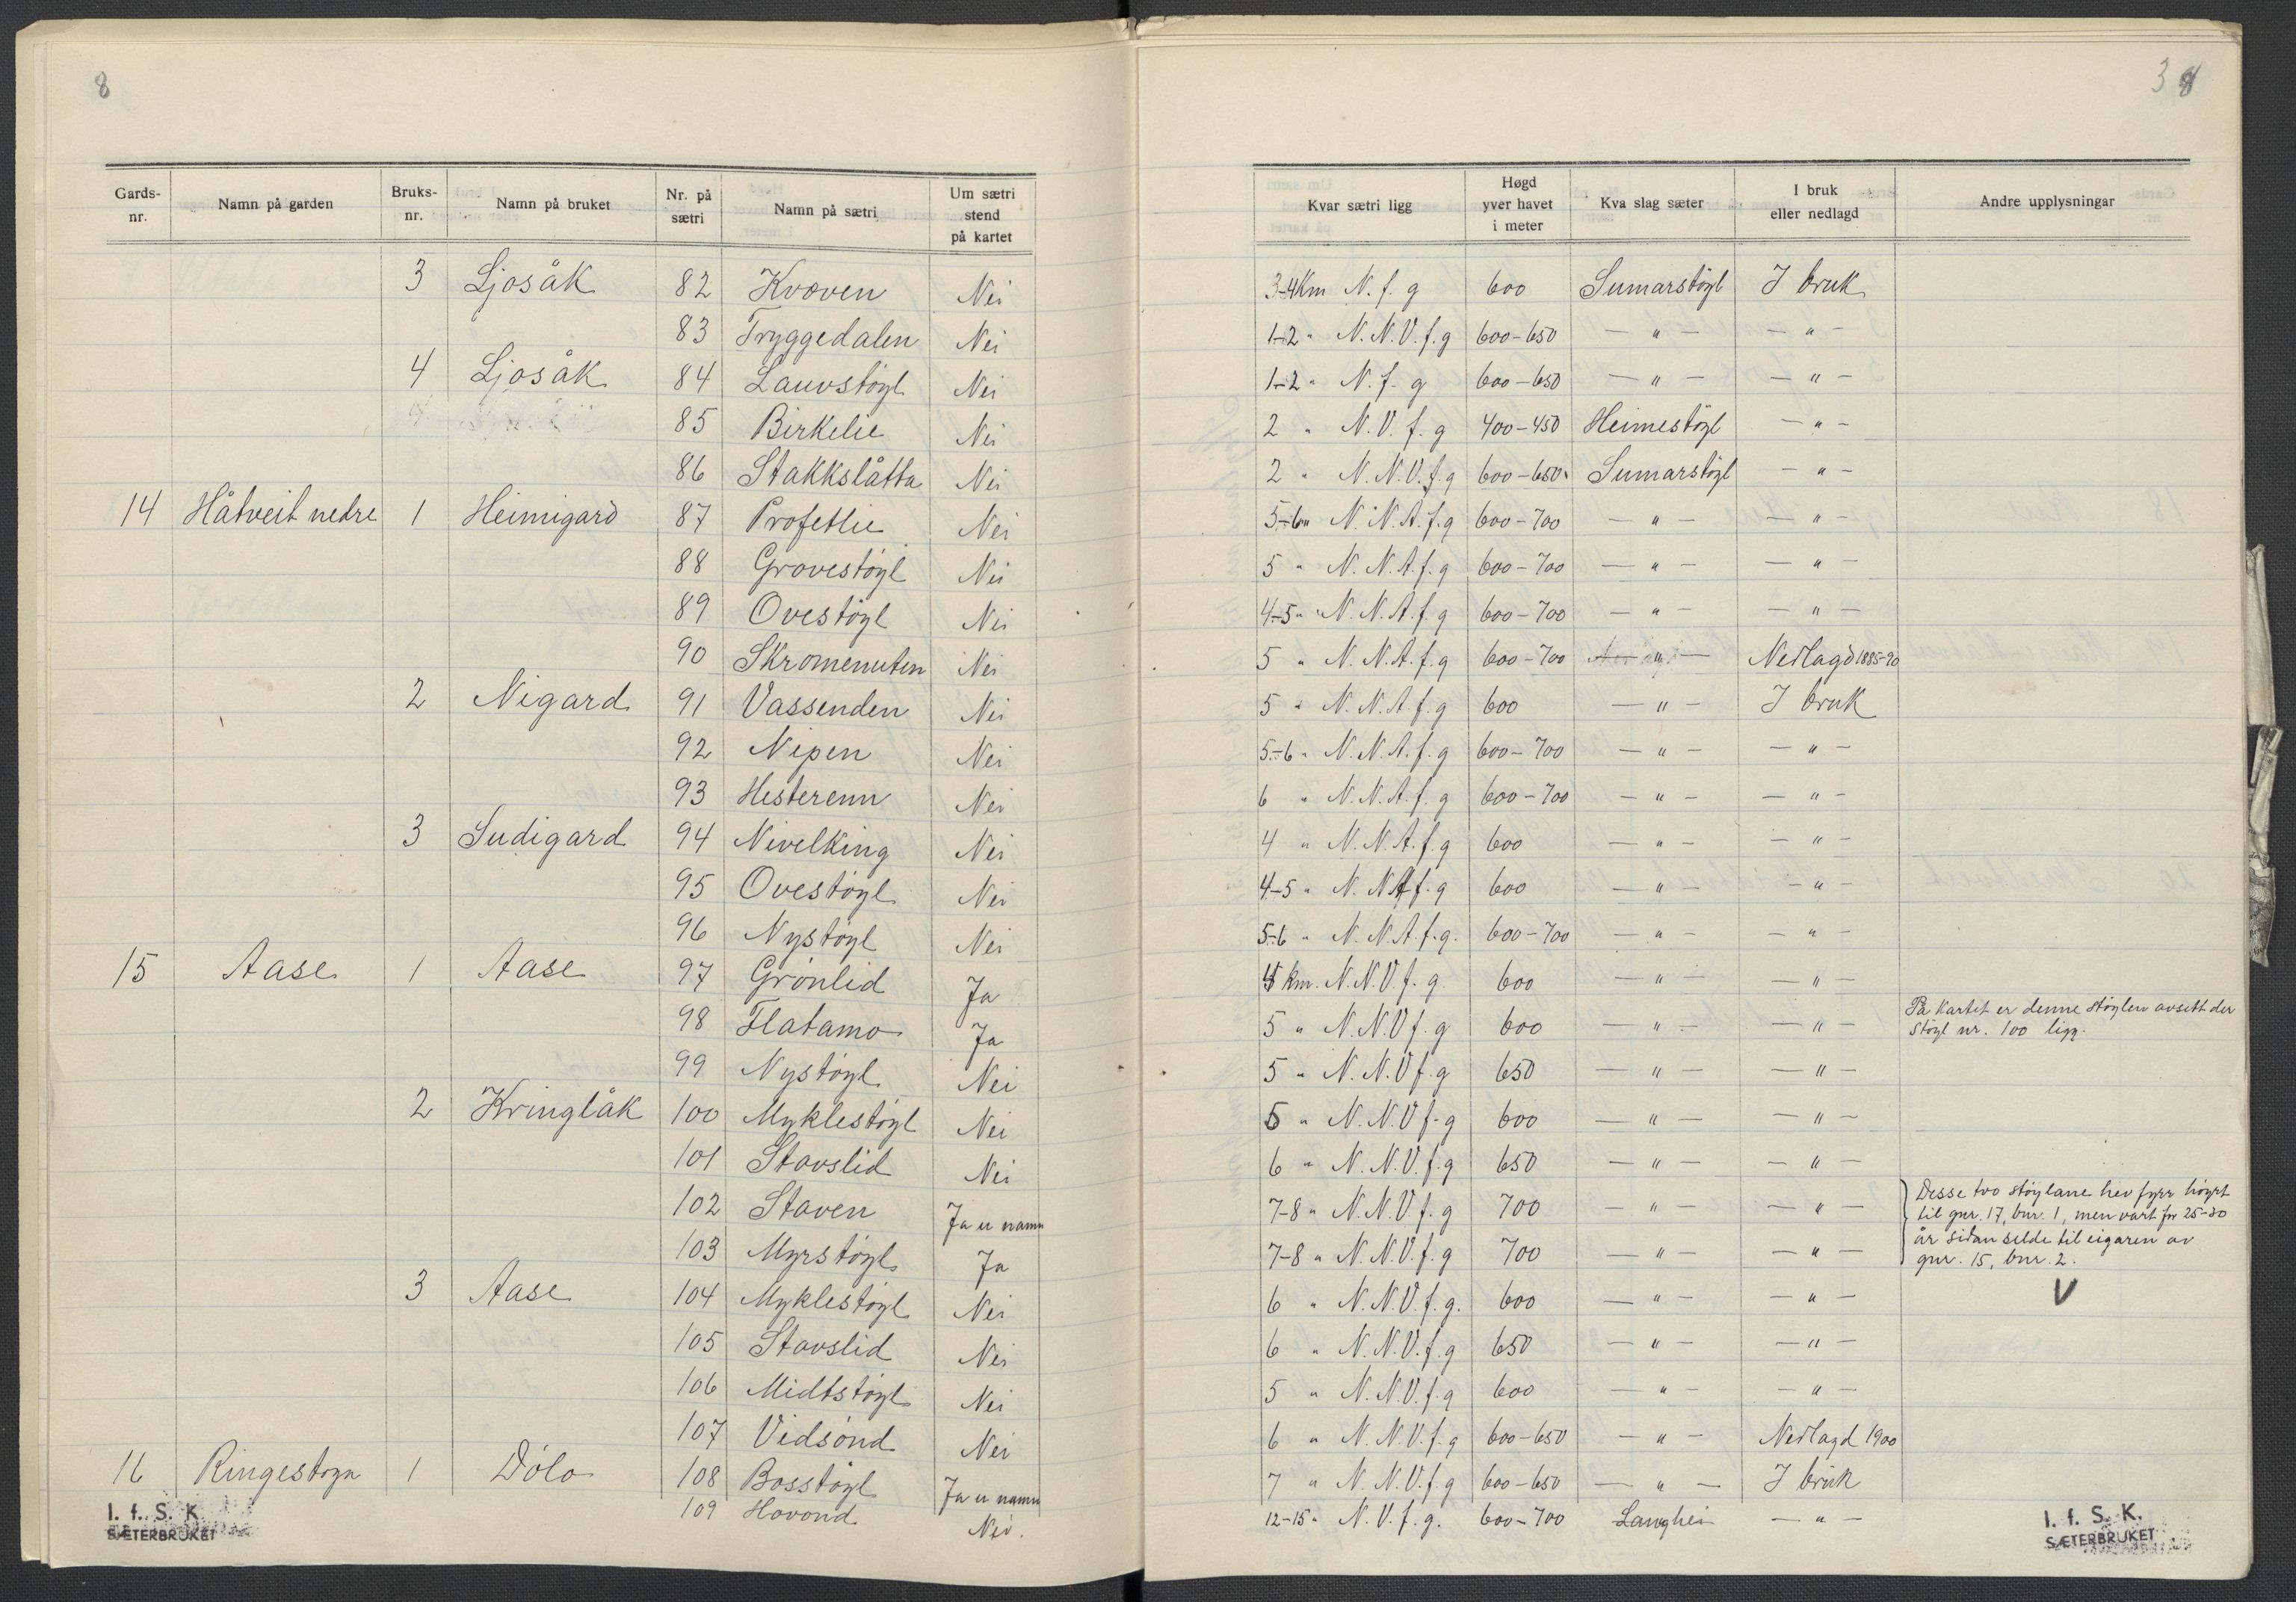 8
Gards-nr. Namn på garden Bruks-nr. Namn på bruket Nr. på sætri Namn på sætri Um sætri stend på kartet
3 Ljosåk 82 Kvoven Nei
83 Tryggedalen Nei
4 Ljosåk 84 Lauvstøyl Nei
85 Birkelie Nei
86 Stakkslåtta Nei
14 Håtveit nedre 1 Heimigard 87 Profetlie Nei
88 Grovestøyl Nei
89 Ovestøyl Nei
90 Skromenuten Nei
2 Nigard 91 Vassenden Nei
92 Nipen Nei
93 Hesterenn Nei
3 Sudigard 94 Nivelking Nei
95 Ovestøyl Nei
96 Nystøyl Nei
15 Aase 1 Aase 97 Grönlid Ja
98 Flatamo Ja
99 Nystøyl Nei
2 Kringlåk 100 Myklestøyl Nei
101 Stavslid Nei
102 Staven Ja er namn
103 Myrstøyl Ja
3 Aase 104 Myklestøyl Nei
105 Stavslid Nei
106 Midtstøyl Nei
107 Vidsond Nei
16 Ringestoga 1 Dølo 108 Bosstøyl Ja er namn
109 Hovond Nei.
I. f. S. K.
SÆTERBRUKET
3 8
Kvar sætri ligg Høgd yver havet i meter Kva slag sæter I bruk eller nedlagd Andre upplysningar
3-4 Km N. f. g 600 Sumarstøyl I bruk
1-2 " N. N. V. f. g 600-650 — " — — " —
1-2 " N. f. g 600-650 — " — — " —
2 " N. V. f. g 400-450 Heimestøyl — " —
2 " N. N. V. f. g 600-650 Sumarstøyl — " —
5-6 " N. N. A. f. g 600-700 — " — — " —
5 " N. N. A. f. g 600-700 — " — — " —
4-5 " N. N. A. f. g 600-700 — " — — " —
5 " N. N. A. f. g 600-700 — " — Nedlagd 1885-90
5 " N. N. A. f. g 600 — " — I bruk
5-6 " N. N. A. f. g 600-700 — " — — " —
6 " N. N. A. f. g 600-700 — " — — " —
4 " N. N. A. f. g 600 — " — — " —
4-5 " N. N A f. g 600 — " — — " —
5-6 " N. N. A. f. g. 600-700 — " — — " —
km. N. N. V. f. g. 600 — " — — " —
5 " N. N. V f. g 600 — " — — " — På kartet er denne støylen avsett der
støyl nr. 100 ligg.
5 " N. N. V f. g 650 — " — — " —
5 " N. N. V f. g 600 — " — — " —
6 " N. N. V. f. g 650 — " — — " —
7-8 " N. N. V. f. g 700 — " — — " — Desse tvo støylane hev fyrr høyrt
til gnr. 17, bnr. 1, men vart for 25-30
7-8 " N. N. V. f. g 700 — " — — " — år sidan selde til eigaren av
gnr. 15, bnr. 2.
6 " N. N. V. f. g. 600 — " — — " — V
6 " N. N. V. f. g 650 — " — — " —
5 " N. N. V. f. g 600 — " — — " —
6 " N. N. V. f. g 600-650 — " — Nedlagd 1900
7 " N. N. V. f. g 600-650 — " — I bruk
12-15 " N. V. f. g. 600-700 Langhei — " —
I. f. S. K.
SÆTERBRUKET